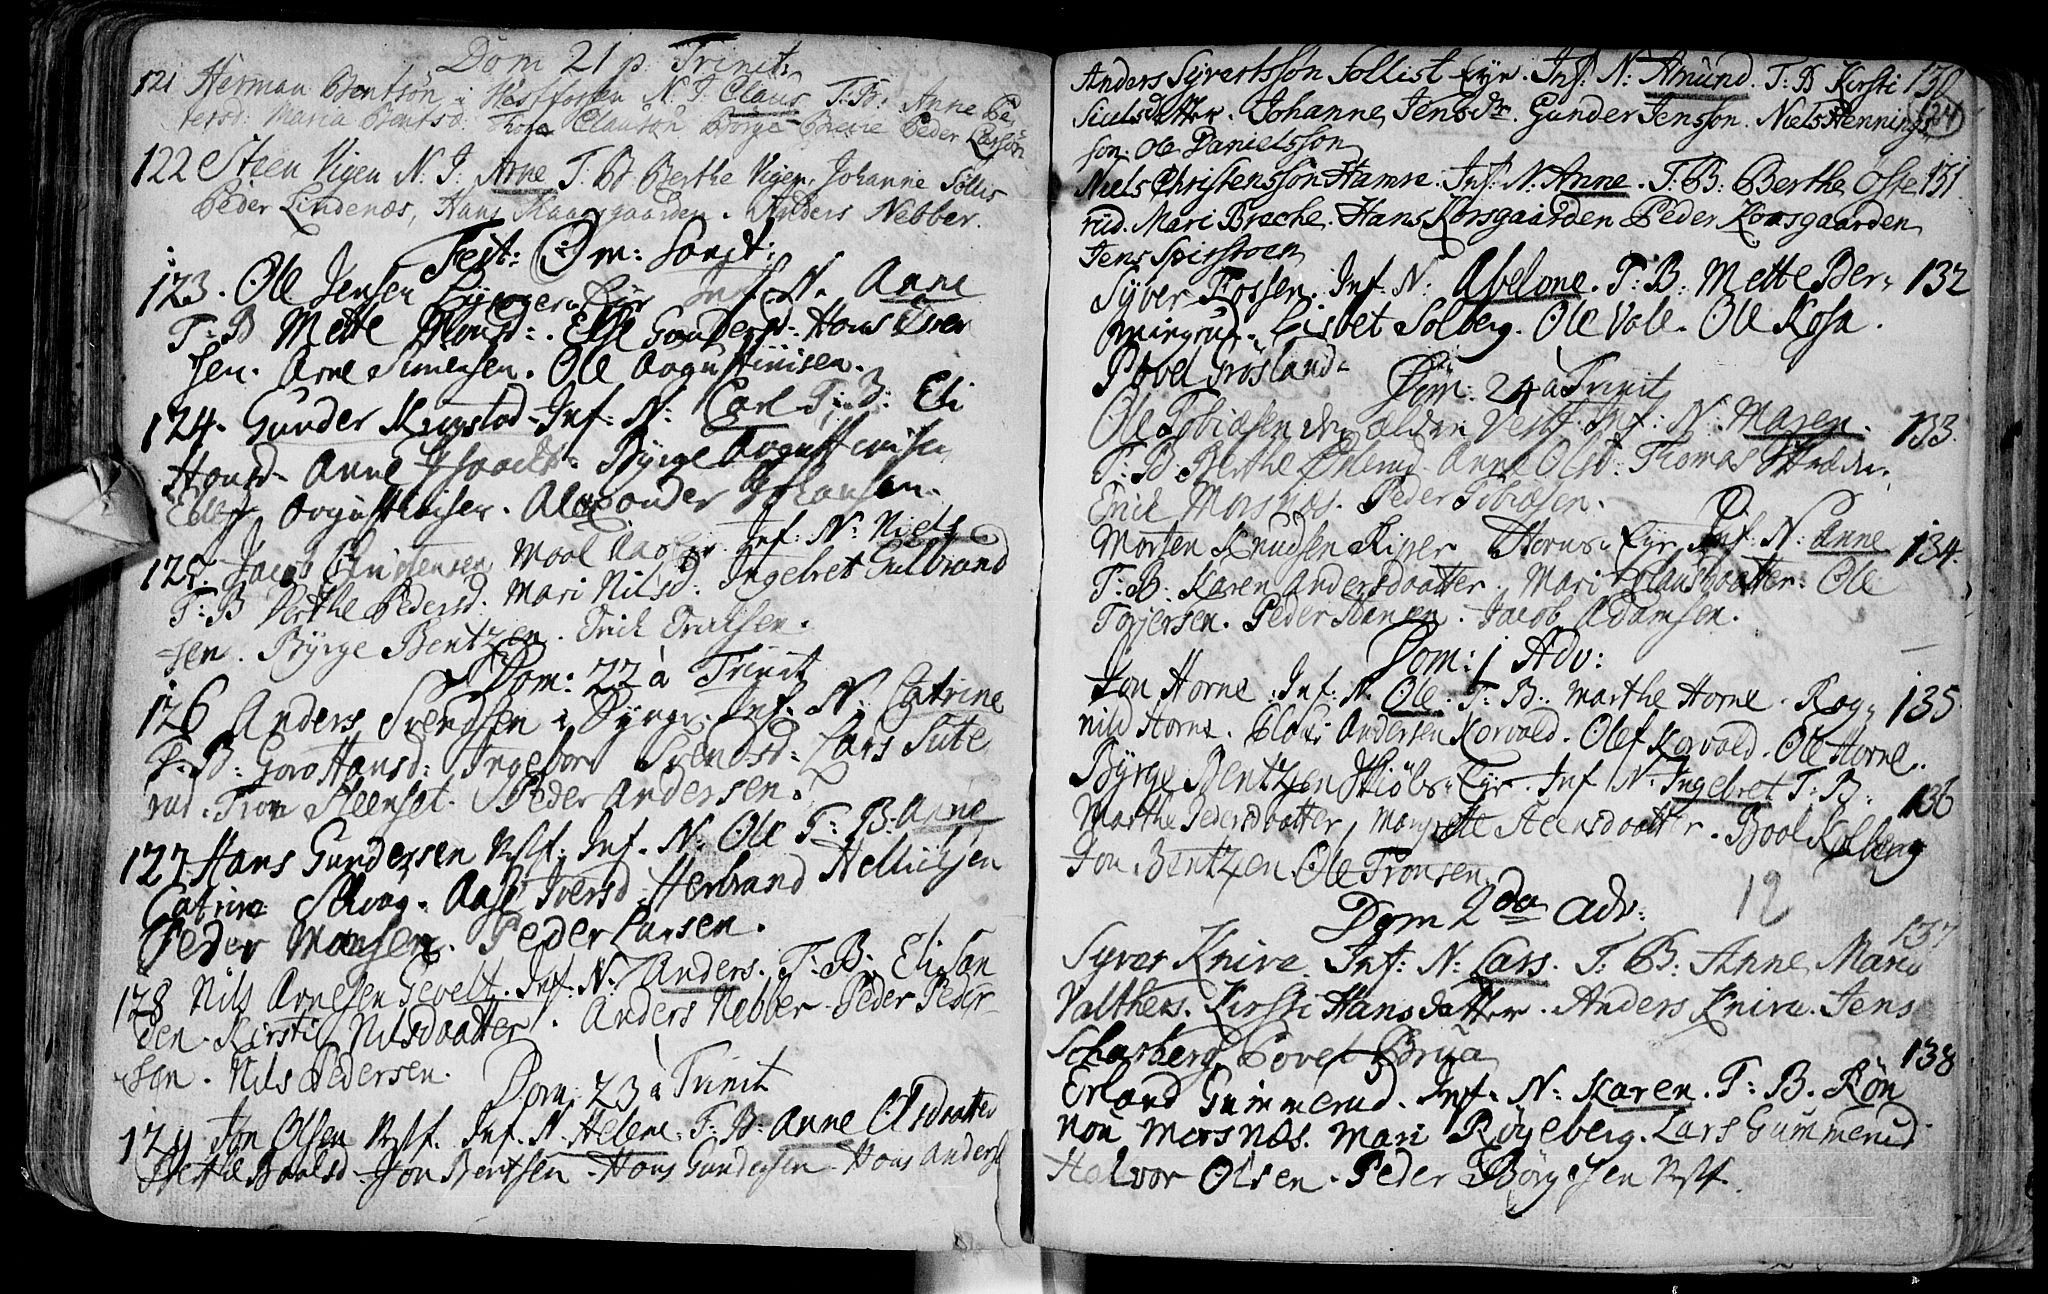 Dom 21 p. Trinit:
121 Herman Bentsön i Westfossen N. J. Claus T. B. Anne Pe
tersd: Maria Bentsd. Clausön Börge Brecie Peder Larsön
122 Steen Vigen N. J. Arne T. B. Berthe Vigen, Johanne Söllis
Peder Lindenæs, Hans Kaarsgaarden. Anders Nebber.
Fest: Om: Sanct:
123. Ole Jensen Eyr Inf. N. Anne
T: B Mette Hansd:. Else Gundersd. Hans Iver
sen. Arne Simensen. Ole Augustinisen.
124. Gunder Krugstad Inf: N: Carl T: B: Eli
Hansd. Anne Byrge Augustinisen
Augustinisen. Alexander Johansen.
125. Jacob Christensen Inf: N: Niels
T: B Berthe Pedersd. Mari Nilsd. Ingebret Gulbrand
sen. Byrge Bentzen. Erick Ericksen.
Dom: 22 à Trinit
126 Anders Svendsen i Byrge. Inf. N: Catrine
T. B: Goro Hansd: Ingebor Svendsd: Lars Sute
rud. Tron Steenset. Peder Andersen.
127. Hans Gundersen Vestf. Inf. N. Ole T: B: Anne
Catrine Selvog. Aase Iversd. Herbrand Hellicksen
Peder Monsen. Peder Larsen.
128 Nils Arnesen Gevelt. Inf. N: Anders. T: B: Eli San
den. Kirsti Nilsdaatter. Anders Nebber. Peder Peder-
sen. Nils Pedersen.
Dom. 23 à Trinit
129 Jon Olsen Vestf. Inf. N. Helene. T: B: Anne Olsdaatter
Bertil Boolsd. Jon Bentsen. Hans Gundersen. Hans Anders
Anders Syvertssön Sollist Eyr. Inf: N: Amund. T: B Kirsti 130
Siulsdatter. Johanne Jensdr. Gunder Jensson. Niels Hennings 124
son: Ole Danielsson
Niels Christensson Hamre. Inf: N: Anne. T: B: Berthe Öste 131
rud. Mari Brache. Hans Korsgaarden Peder Korsgaarden
Jens Spirstoen
Syver Fossen. Inf: N: Abelone. T: B: Mette Ber- 132
mingrud. Lisbet Solberg. Ole Vale. Ole Rosa.
Povel Grösland.
Dom: 24 à Trinit
Ole Tobiasen den ælder Vestf. Inf: N: Maren. 133
T: B: Berthe Anne Olsd: Thomas
Erick Morsnæs. Peder Tobiasen.
Morten Knudsen Horns Eyr. Inf: N: Anne 134.
T: B: Karen Andersdaatter. Mari Clausdaatter. Ole
Torjersen. Peder Hansen. Jacob Adamsen.
Dom: 1 Adv:
Jon Horne. Inf: N. Ole. T: B: Marthe Horne. Rag- 135
nild Horne. Claus Andersen Korvald. Olef Korvald. Ole Horne.
Byrge Bentzen Skiöls Eyr. Inf N: Ingebret T: B: 136
Marthe Pedersdaatter, Margrette Steensdaatter. Bool Kolberg
Jon Bentzen. Ole Tronsen.
12
Dom 2da Adv:
Syver Knive. Inf: N: Lars. T: B: Anne Marie 137
Valthers. Kirsti Hansdatter. Anders Knive. Jens
Scharberg, Povel Brua
138
Erland Gummerud. Inf. N: Karen. T: B. Rön
nou Morsnæs. Mari Röyeberg. Lars Gummerud
Halvor Olsen. Peder Börgesen Vestf.